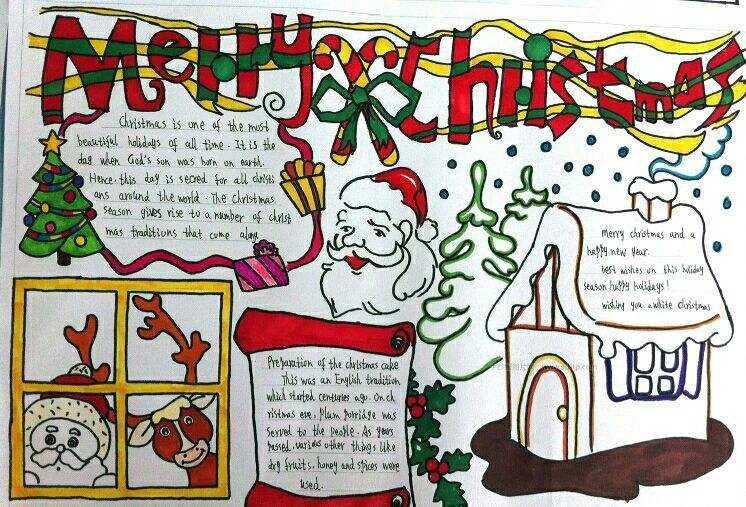 Merry Christmas
Christmas is one of the most
beautiful holidays of all time. It is the
day when God's son was born on earth.
Hence, this day is secred for all christi
ans around the world. The christmas
season gives rise to a number of christ
mas traditions that come along
Merry christmas and a
happy new year.
best wishes on this holiday
season happy holidays!
wishing you a white christmas
Preparation of the christmas cake
This was an English tradition
which started centuries ago. On ch
ristmas eve. Plum Porridge was
served to the people. As years
passed, various other things like
dry fruits, honey and spices were
used.